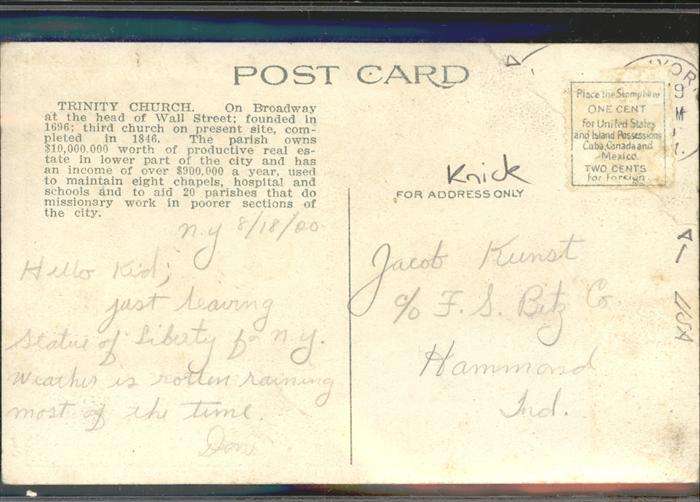 POST CARD
TRINITY CHURCH. On Broadway
at the head of Wall Street; founded in
1696; third church on present site, com-
pleted in 1846. The parish owns
$10,000,000 worth of productive real es-
tate in lower part of the city and has
an income of over $900,000 a year, used
to maintain eight chapels, hospital and
schools and to aid 20 parishes that do
missionary work in poorer sections of
the city.
N.Y 8/18/20
Hello Kid;
just leaving
Statue of Liberty for N.Y.
Weather is rotten raining
most of the time.
Don
YOR
9
M
Place the Stamp here
ONE CENT
For United States
and Island Possessions
Cuba, Canada and
Mexico.
TWO CENTS
for Foreign.
Knick
FOR ADDRESS ONLY
Jacob Kunst
c/o F. S. Betz Co.
Hammond
Ind.
USA